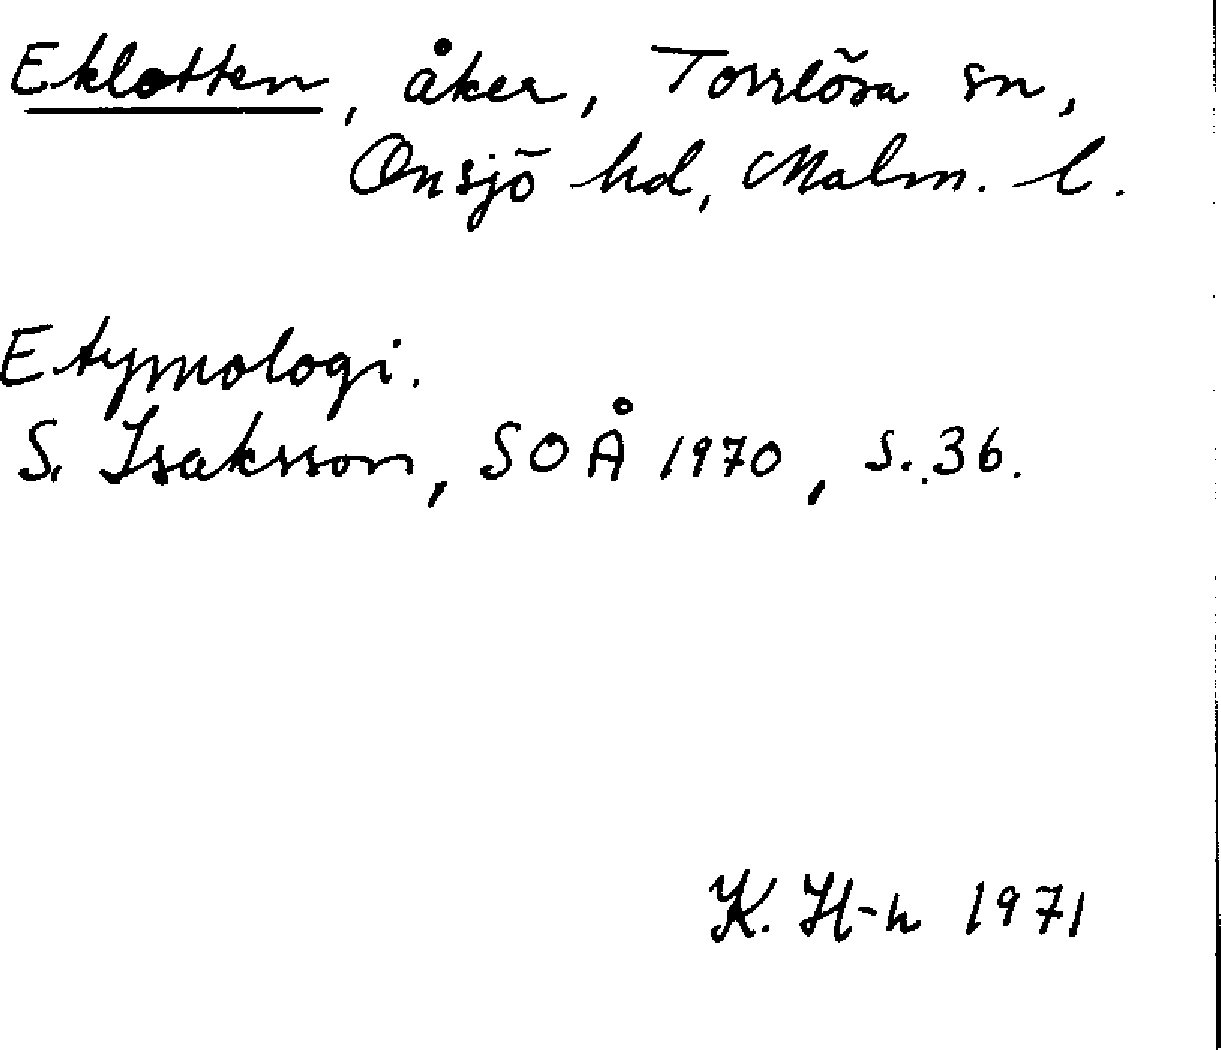 Eklotten, åker, Torrlösa sn,
Onsjö hd, Malm. l.
Etymologi.
S. Isaksson, SOÅ 1970, s. 36.
K. H-n 1971